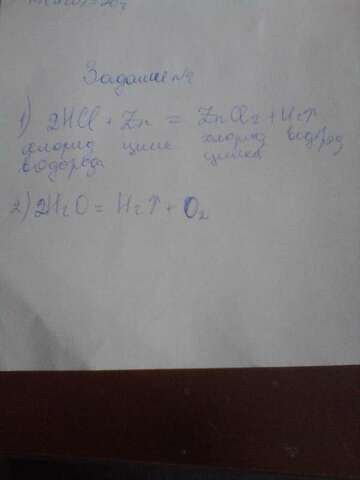 Задание №2
1) 2HCl + Zn = ZnCl₂ + H₂↑
хлорид цинк хлорид водород
водорода цинка
2) 2H₂O = H₂↑ + O₂